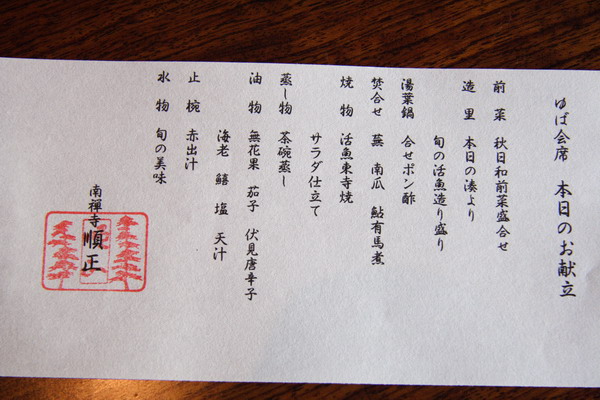 ゆば会席　本日のお献立
前菜　秋日和前菜盛合せ
造里　本日の湊より
旬の活魚造り盛り
湯葉鍋　合せポン酢
焚合せ　蕪　南瓜　鮎有馬煮
焼物　活魚東寺焼
サラダ仕立て
蒸し物　茶碗蒸し
油物　無花果　茄子　伏見唐辛子
海老　鱚　塩　天汁
止椀　赤出汁
水物　旬の美味
南禅寺　順正